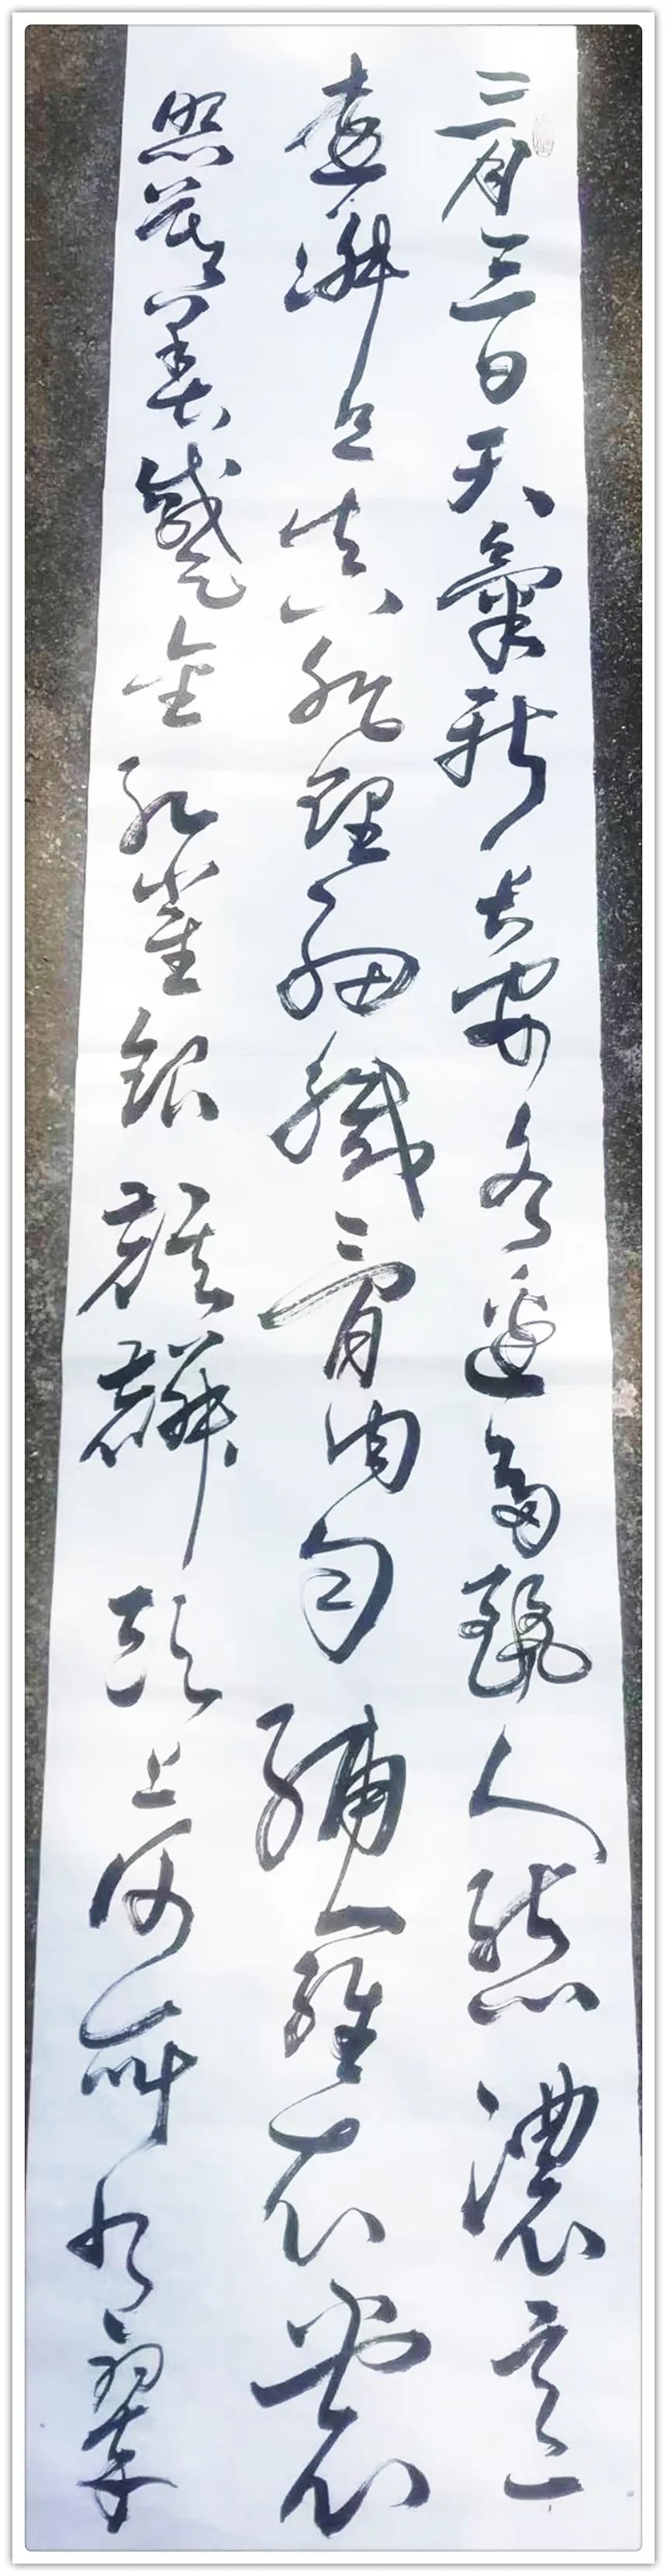 三月三日天氣新長安水邊多麗人態濃意
遠淑且真肌理細膩骨肉勻繡羅衣裳
照暮春蹙金孔雀銀麒麟頭上何所有翠